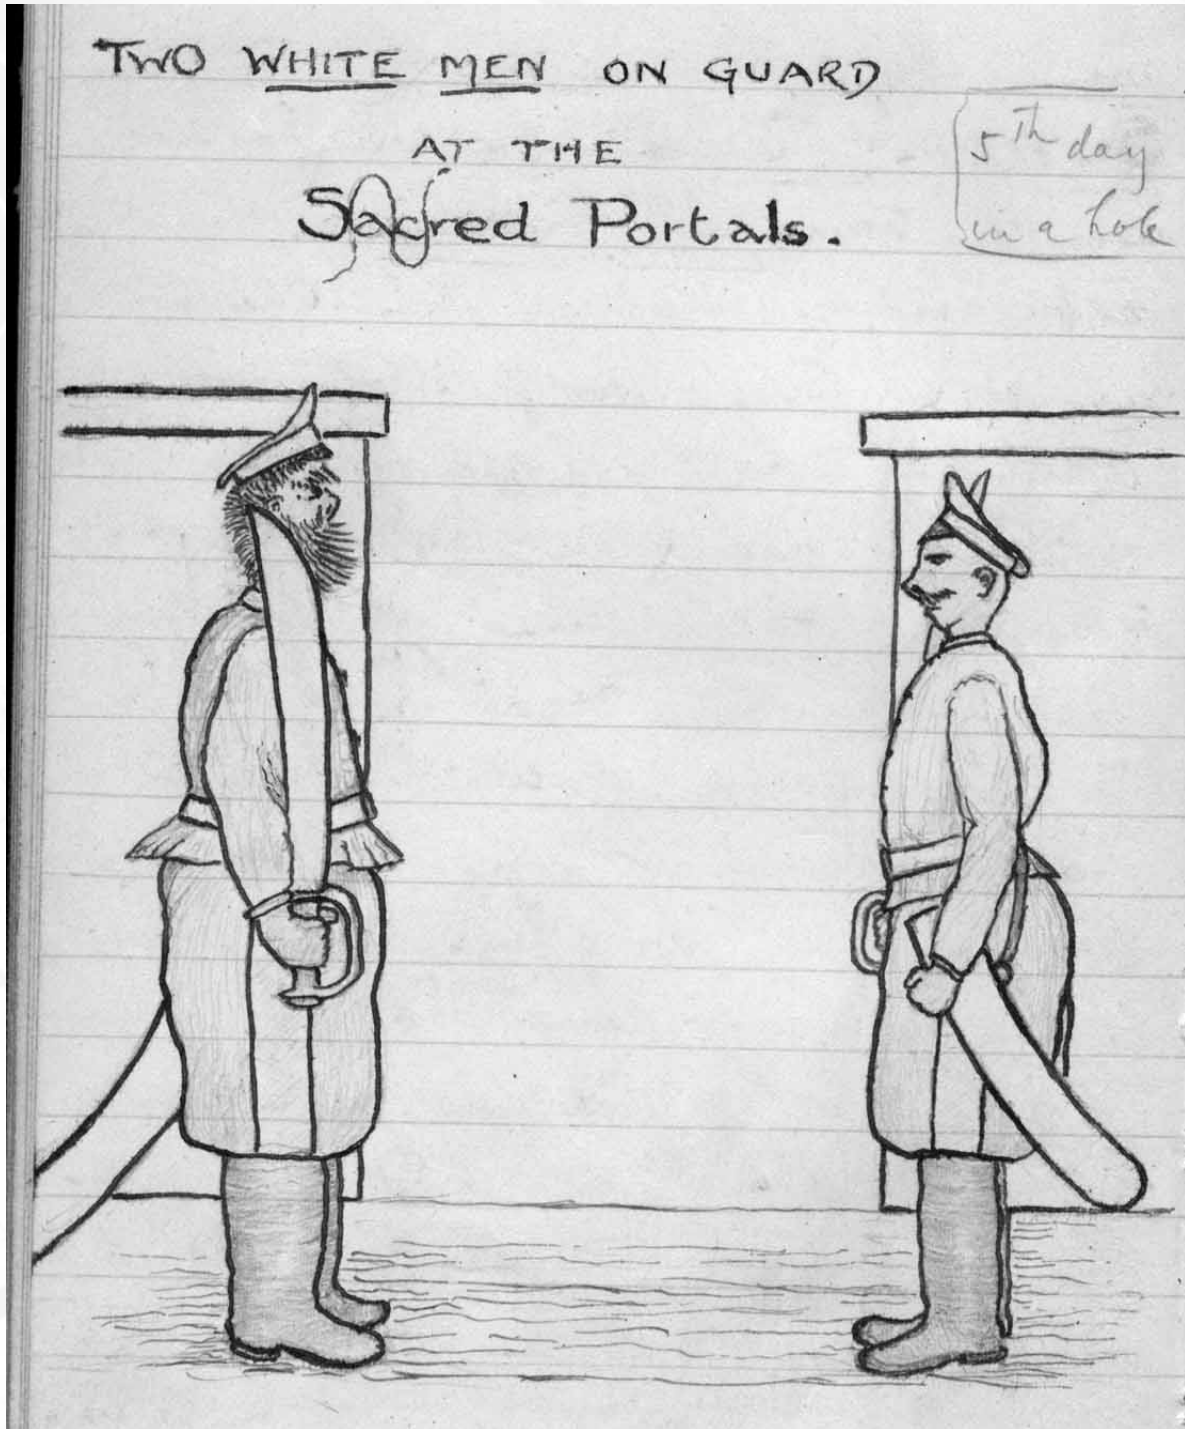 TWO WHITE MEN ON GUARD
AT THE
Sacred Portals.
5th day
in a hole